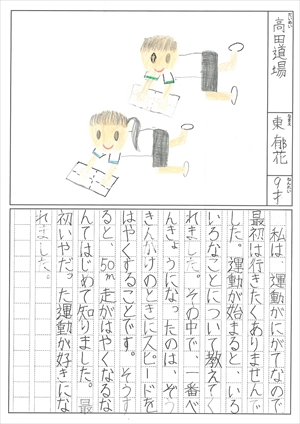 だいめい
高田道場
なまえ
東 郁花
ねんれい
9才
私は、運動がにがてなので
最初は行きたくありませんで
した。運動が始まると、いろ
いろなことについて教えてく
れました。その中で、一番べ
んきょうになったのは、ぞう
きんがけのときにスピードを
はやくすることです。そうす
ると、50m走がはやくなるな
んてはじめて知りました。最
初いやだった運動が好きにな
れました。